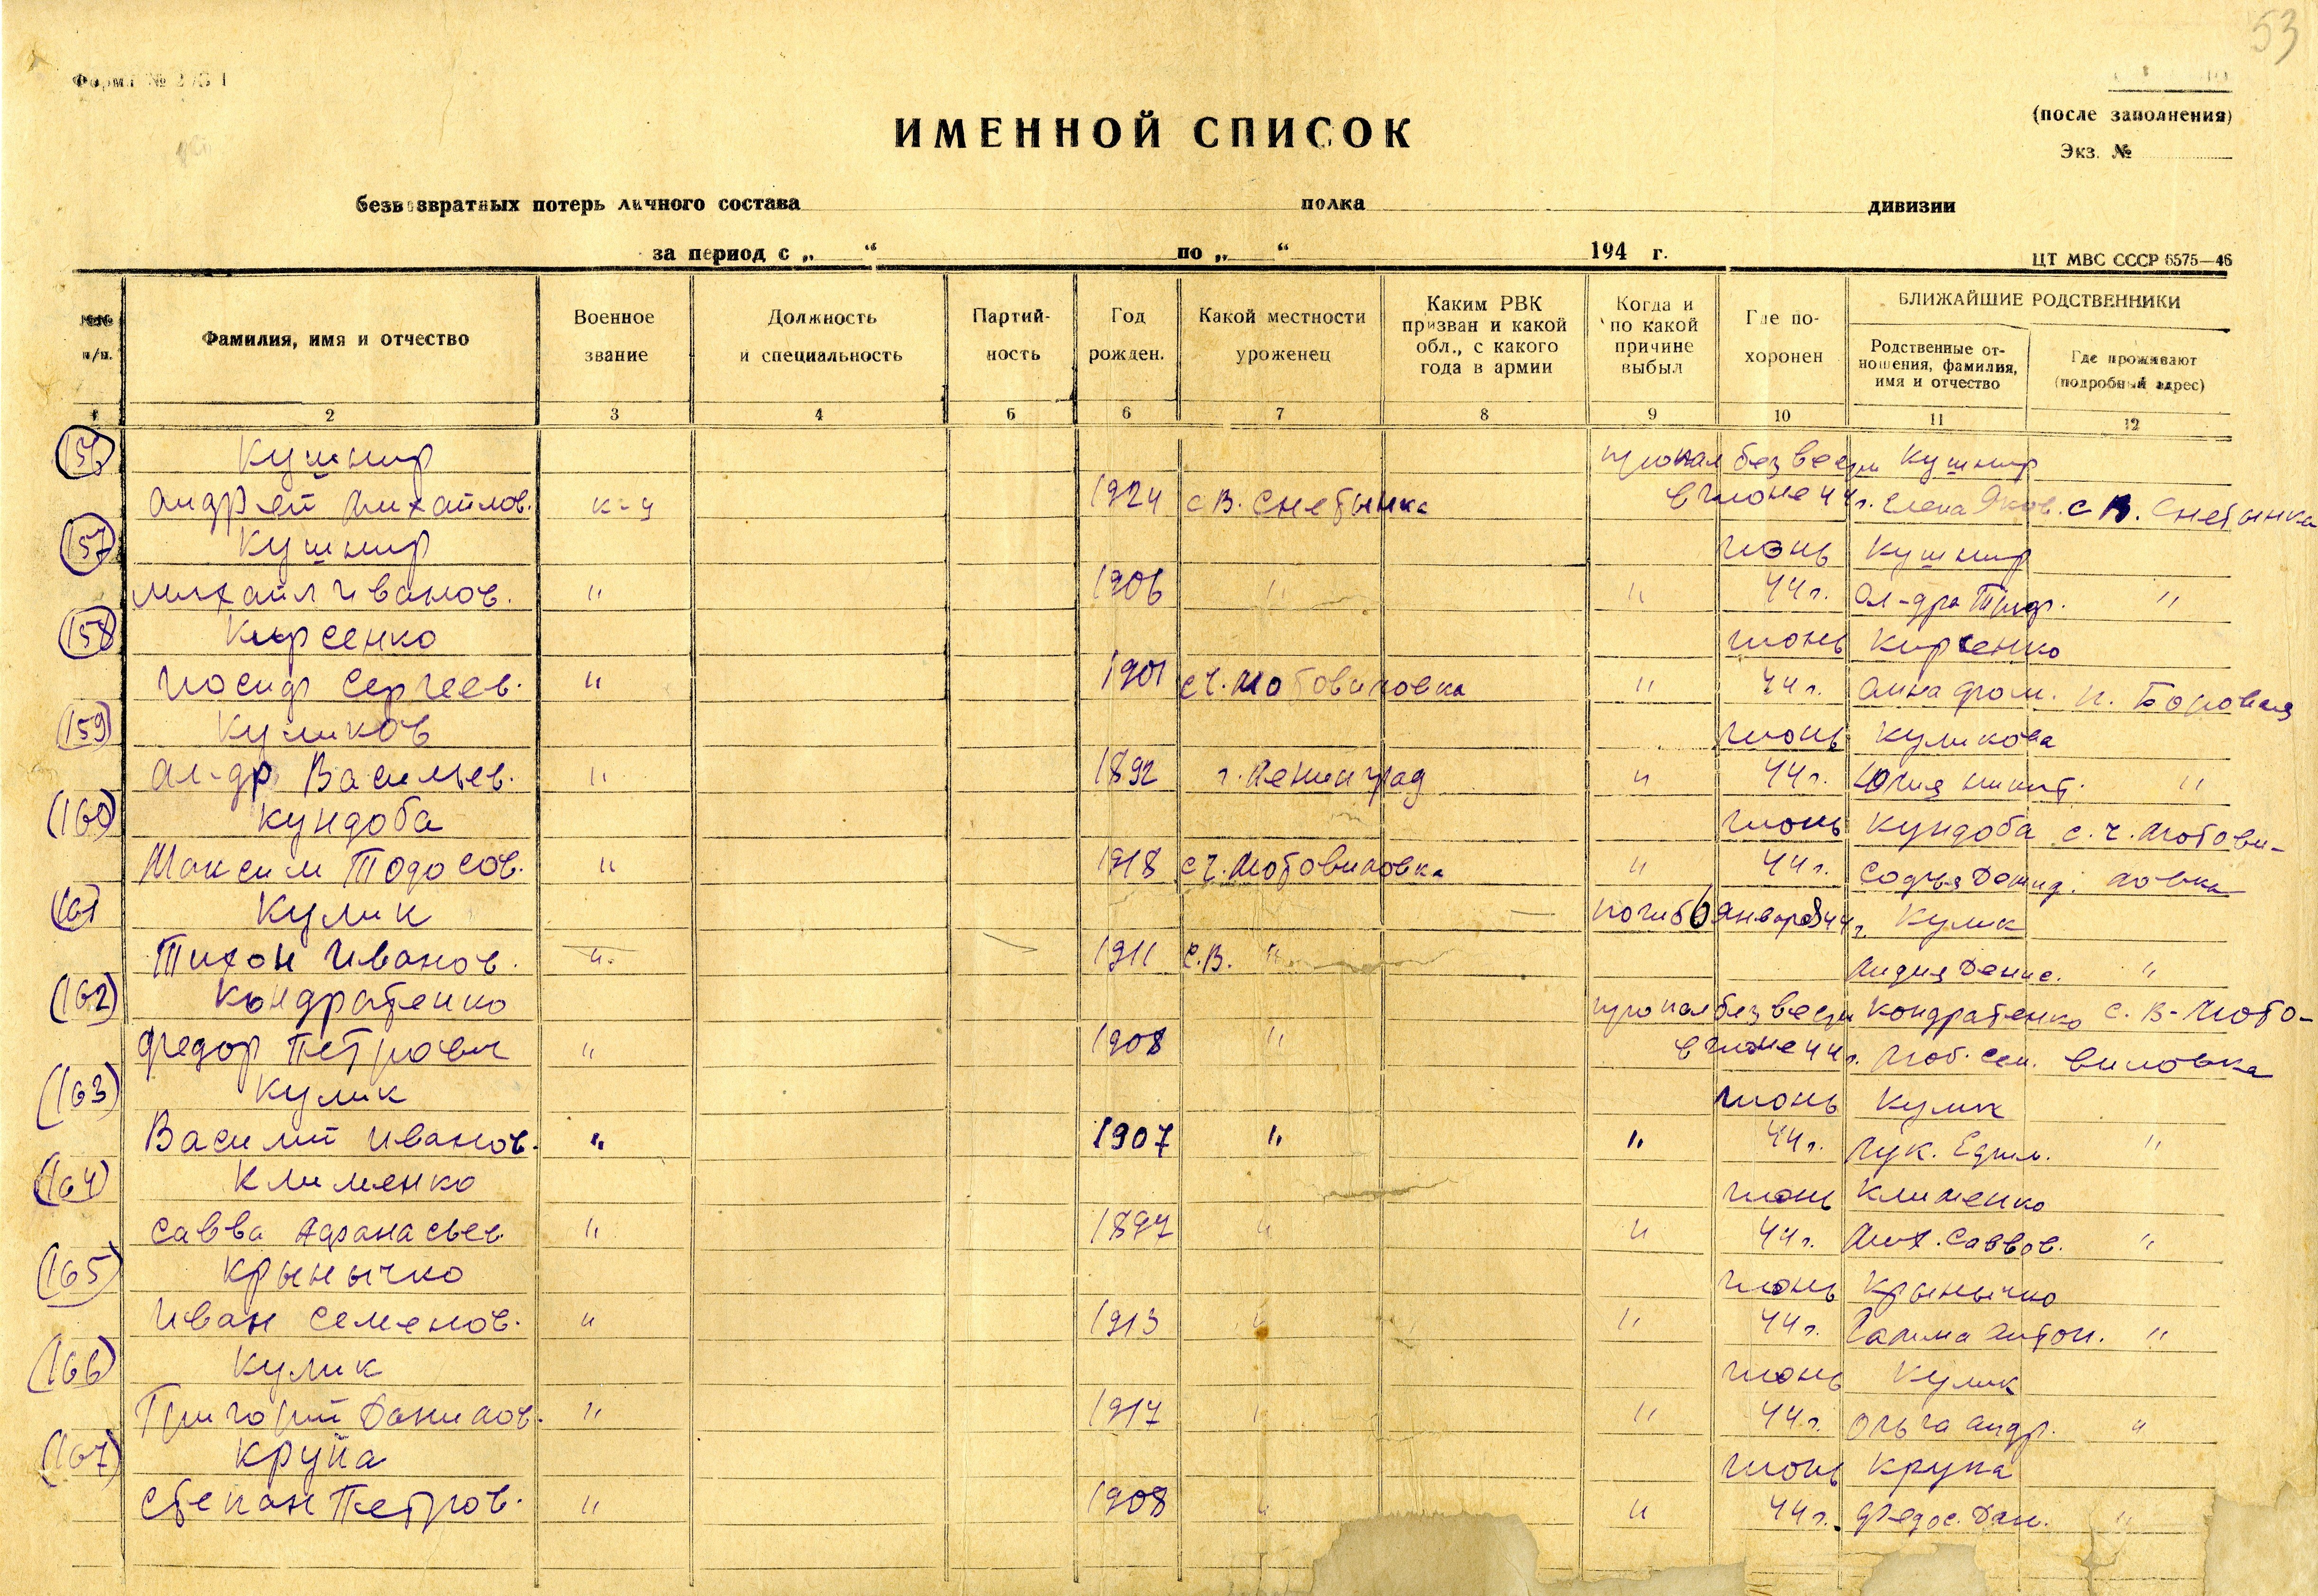 53
Форма № 2
(после заполнения)
ИМЕННОЙ СПИСОК
Экз. №
безвозвратных потерь личного состава полка дивизии
за период с „ “ по „ “ 194 г.
ЦТ МВС СССР 6575—46
№№ п/п.
Фамилия, имя и отчество
Военное звание
Должность и специальность
Партий- ность
Год рожден.
Какой местности уроженец
Каким РВК призван и какой обл., с какого года в армии
Когда и по какой причине выбыл
Где по- хоронен
БЛИЖАЙШИЕ РОДСТВЕННИКИ
Родственные от- ношения, фамилия, имя и отчество
Где проживают (подробный адрес)
1 2 3 4 5 6 7 8 9 10 11 12
156 Кушнир пропал без вести Кушнир
Андрей Михайлов. к-ц 1924 с В. Снетынка в июне 44 г. Елена Яков. с В. Снетынка
157 Кушнир июнь Кушнир
Михаил Иванов. " 1906 " " 44 г. Ал-дра "
158 Кирсенко июнь Кирсенко
Иосиф Сергеев. " 1901 с Ч. Мотовиловка " 44 г. Анна п. Боровая
159 Куликов июнь Куликова
Ал-др Васильев. " 1892 г. Ленинград " 44 г. Юлия Никит. "
160 Кундоба июнь Кундоба с. Ч. Мотови-
Максим Тодосов. " 1918 с Ч. Мотовиловка " 44 г. Софья Демид. ловка
161 Кулик погиб 6 января 44 г. Кулик
Тихон Иванов. " 1911 с. В. " Лидия Денис. "
162 Кондратенко пропал без вести Кондратенко с. В-Мото-
Федор Петрович " 1908 " в июне 44 г. Люб. Сем. виловка
163 Кулик июнь Кулик
Василий Иванов. " 1907 " " 44 г. Лук. Ефим. "
164 Клименко июнь Клименко
Савва Афанасьев. " 1897 " " 44 г. Мих. Саввов. "
165 Крынычко июнь Крынычко
Иван Семенов. " 1913 " " 44 г. Галина Антон. "
166 Кулик июнь Кулик
Григорий Данилов. " 1917 " " 44 г. Ольга Андр. "
167 Крупа июнь Крупа
Степан Петров. " 1908 " " 44 г. Федос. Дан. "